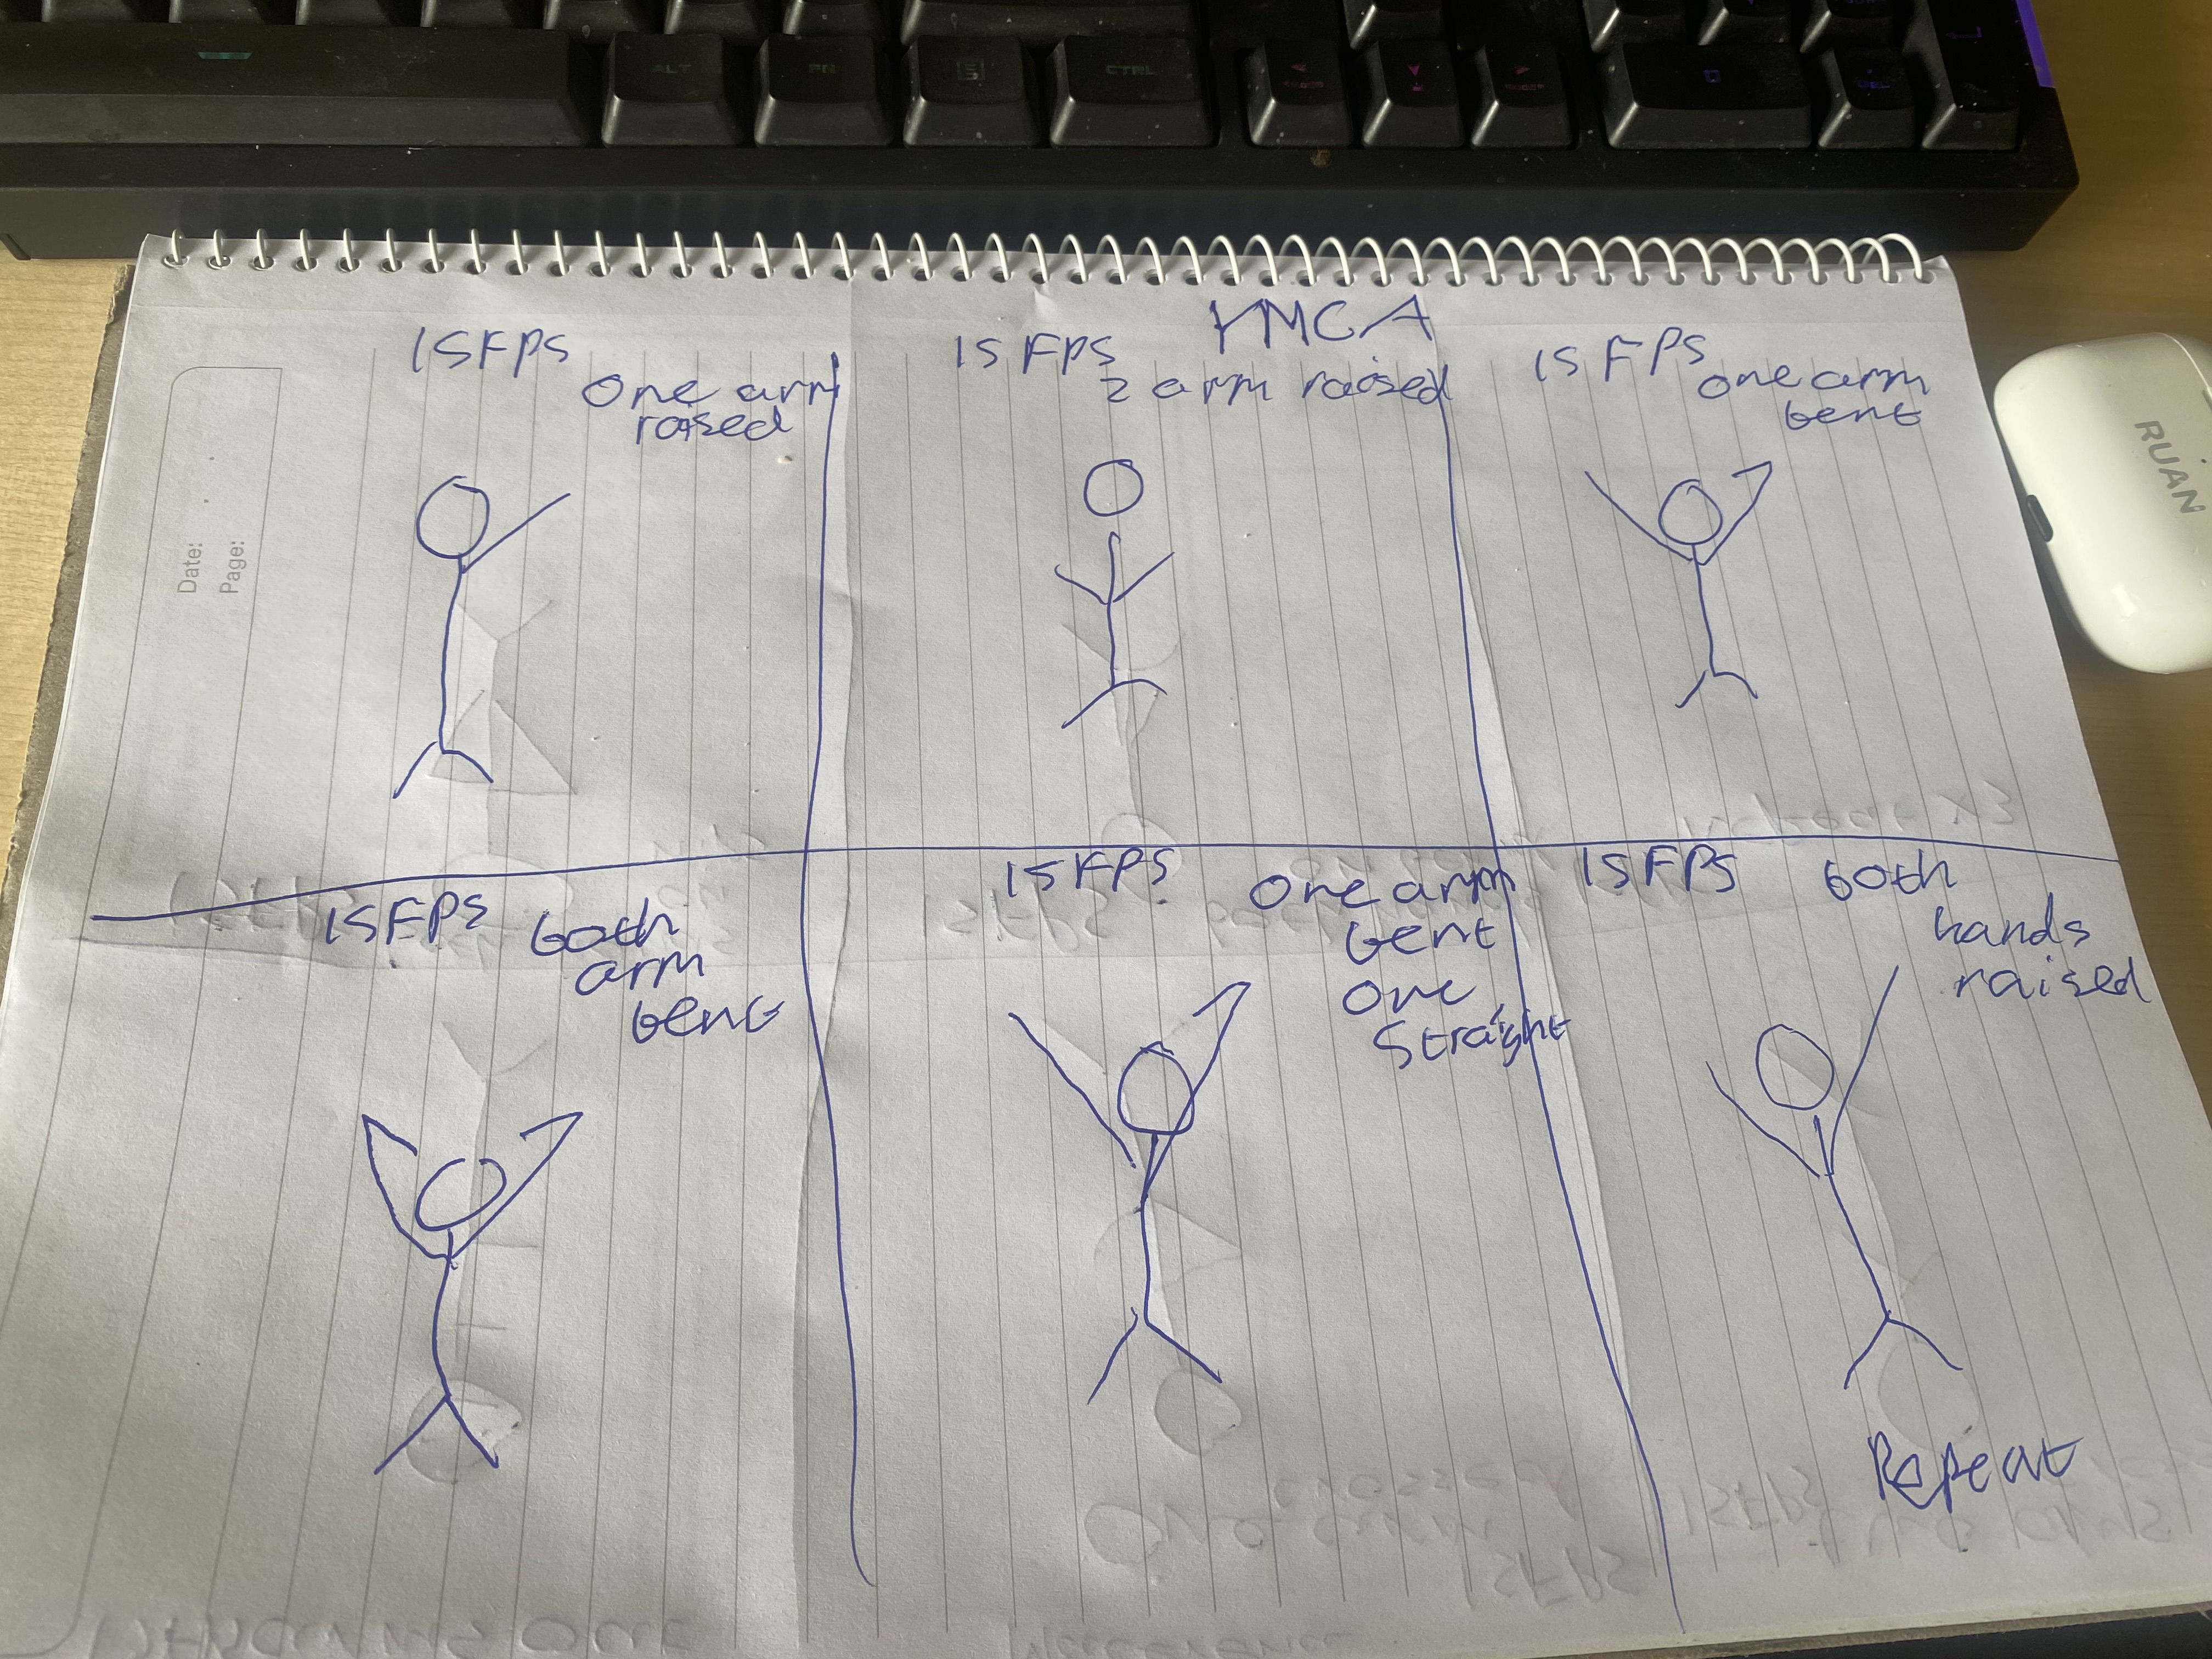 Date:
Page:
YMCA
ISFPS
One arm
raised
ISFPS
2 arm raised
ISFPS
one arm
bent
ISFPS both
arm
bent
ISFPS One arm
bent
One
Straight
ISFPS both
hands
raised
Repeat
RUAN